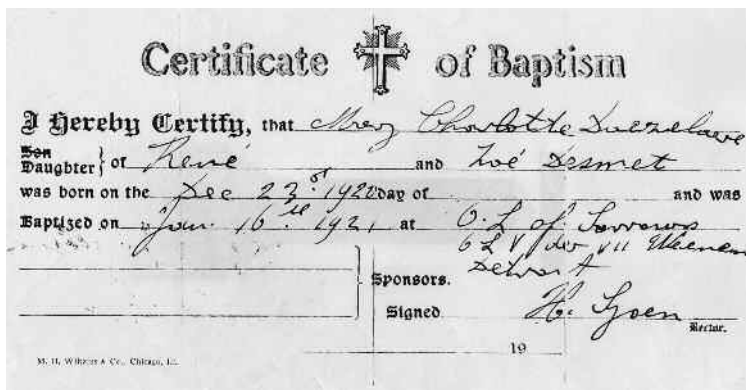 Certificate of Baptism
I Hereby Certify, that Mary Charlotte
Son
Daughter } of René and Zoé Desmet
was born on the Dec 23 1920 day of and was
Baptized on Jan. 16 1921 at O. L. of Sorrows
O L V der VII Weenen
Detroit
Sponsors.
Signed H. Syoen
Rector.
19
M. H. Wiltzius & Co., Chicago, Ill.